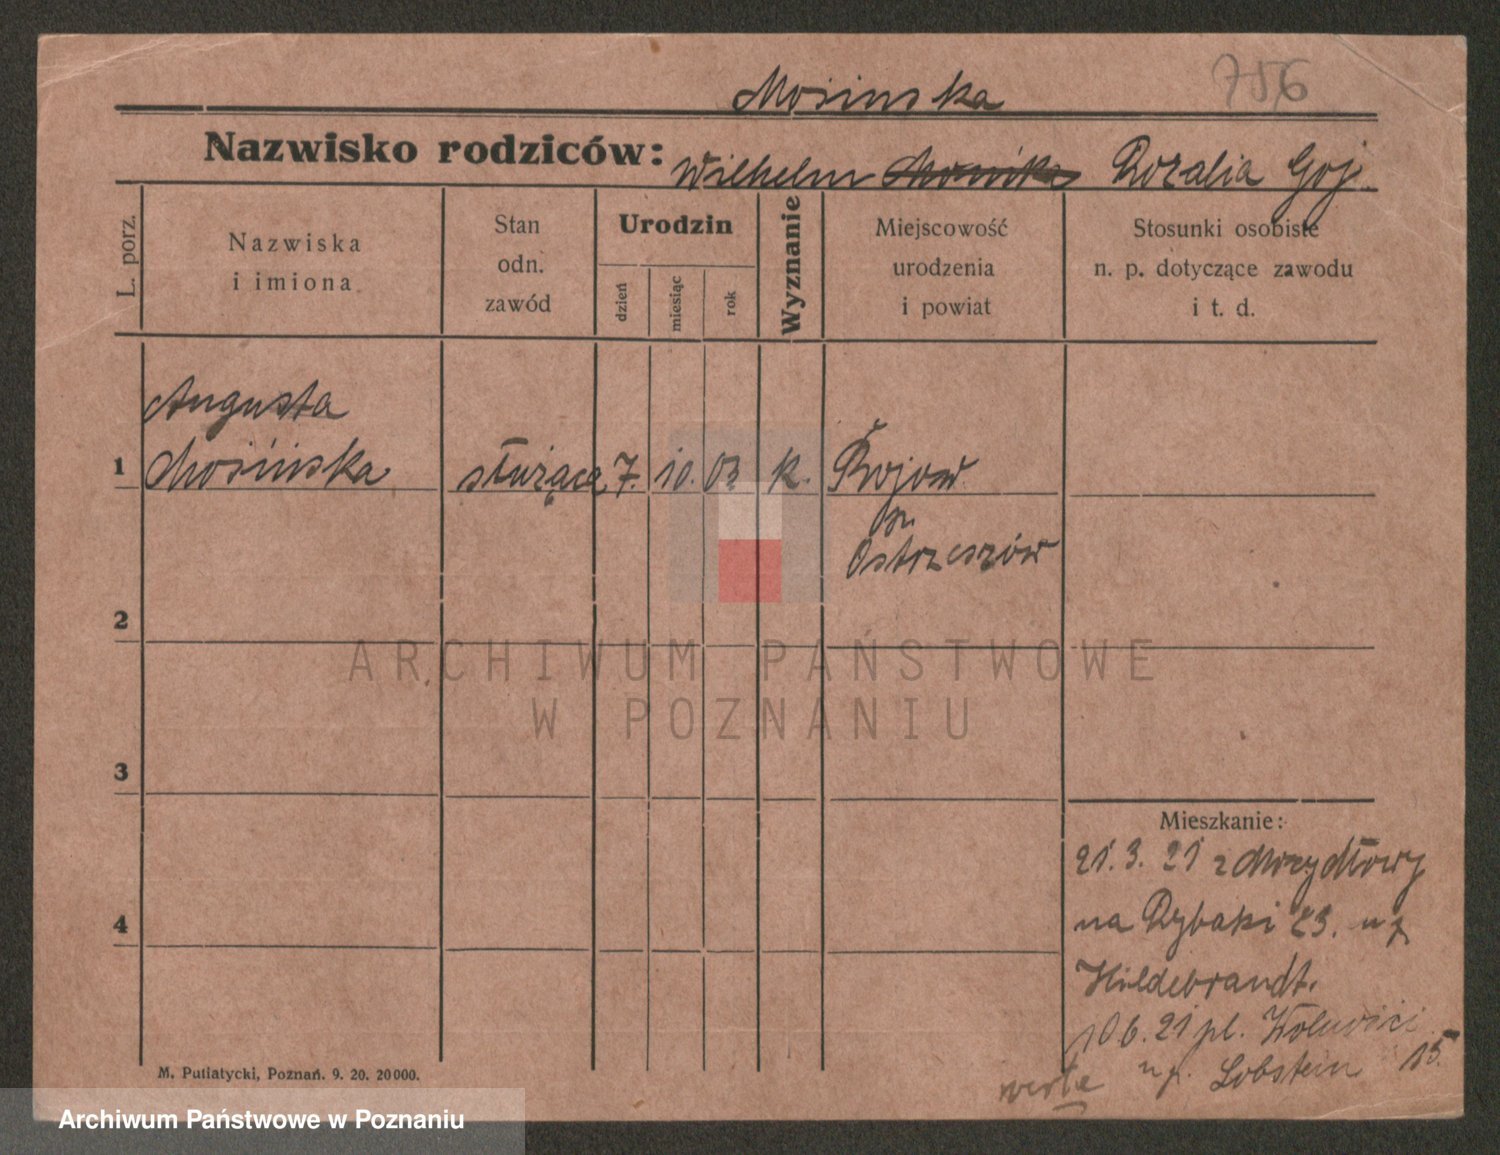 756
Mosinska
Nazwisko rodziców: Wilhelm Rozalia Goj.
L. porz.
Nazwiska
i imiona
Stan
odn.
zawód
Urodzin
dzień
miesiąc
rok
Wyznanie
Miejscowość
urodzenia
i powiat
Stosunki osobiste
n. p. dotyczące zawodu
i t. d.
Augusta
1 Mosińska służąca 7. 10. 03 k. Rojow
p.
Ostrzeszów
2
ARCHIWUM PAŃSTWOWE
W POZNANIU
3
4
Mieszkanie:
21. 3. 21 z
na Rybaki 23.
Hildebrandt.
10 6. 21 pl. Wolności
15.
n p. Lobstein
verte
M. Putiatycki, Poznań. 9. 20. 20000.
Archiwum Państwowe w Poznaniu